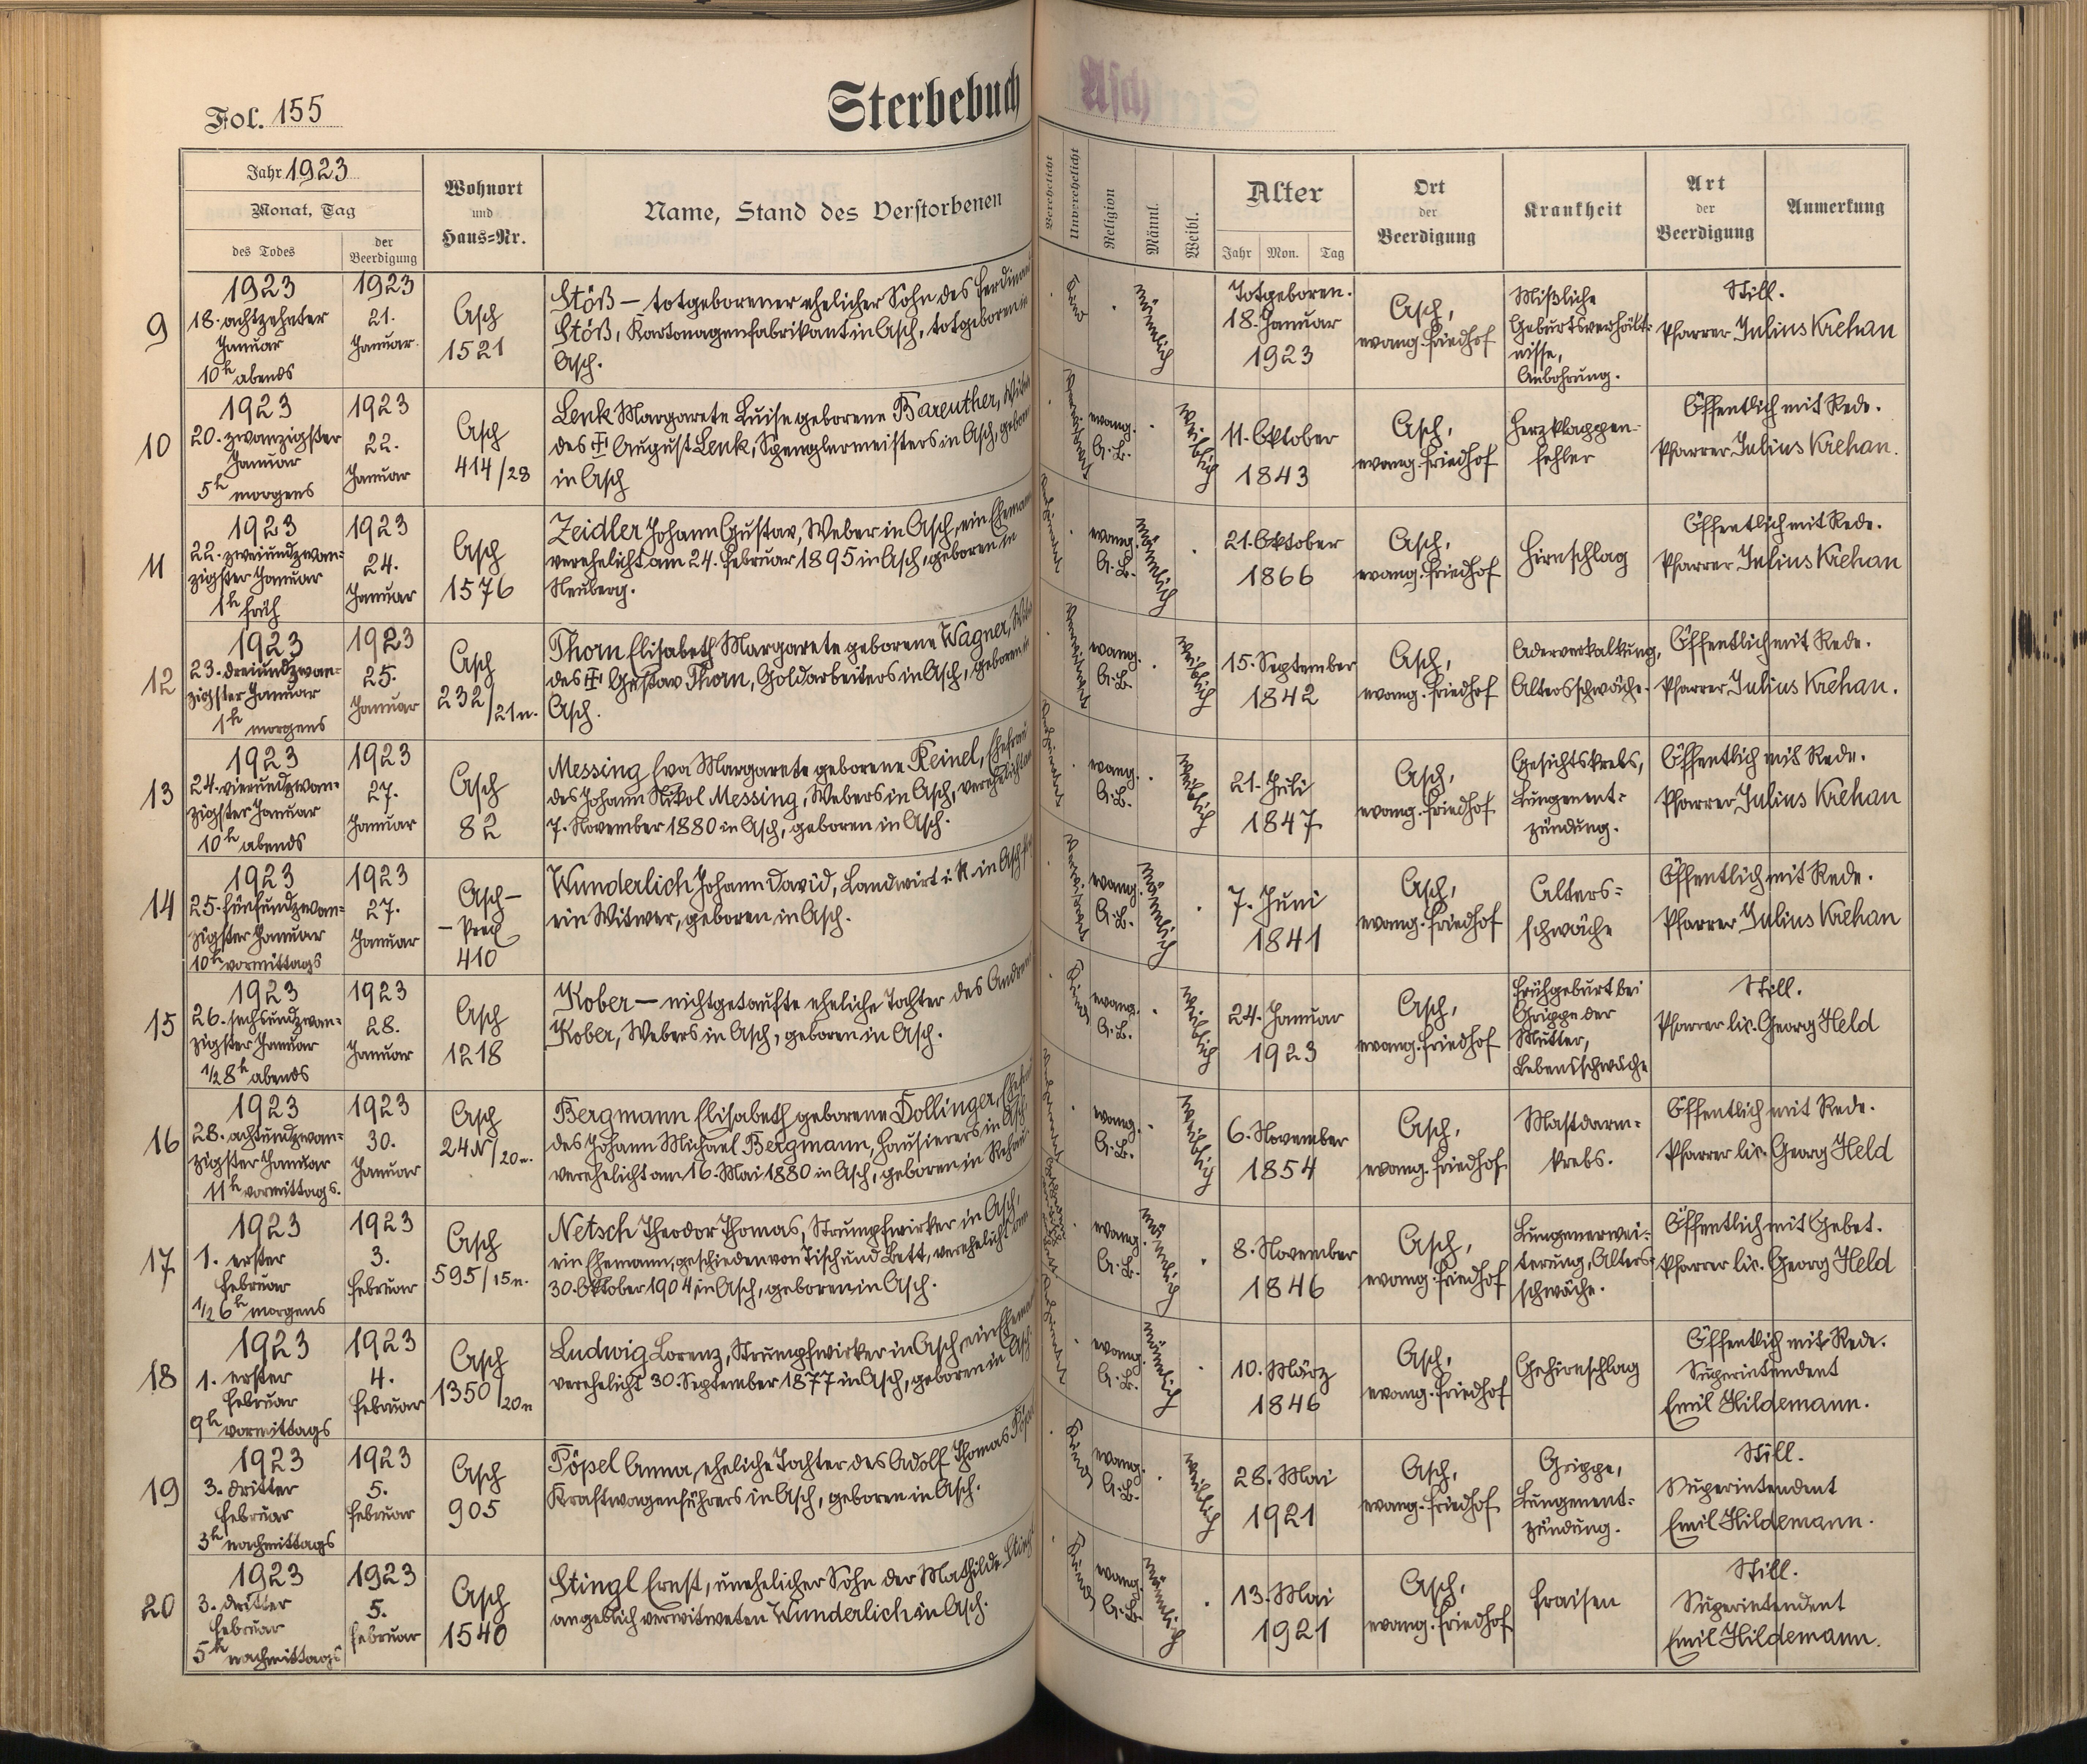 Fol. 155
Sterbebuch
Jahr 1923
Monat, Tag
des Todes
der Beerdigung
Wohnort
und
Haus=Nr.
Name, Stand des Verstorbenen
Verehelicht
Unverehelicht
Religion
Männl.
Weibl.
Alter
Jahr Mon. Tag
Ort
der
Beerdigung
Krankheit
Art
der
Beerdigung
Anmerkung
9
1923
18. achtzehnter
Januar
10h abends
1923
21.
Januar.
Asch
1521
Stöß — totgeborener ehelicher Sohn des
Stöß, Kartonagenfabrikant in Asch, totgeboren in
Asch.
männlich
Totgeboren.
18. Januar
1923
Asch,
evang. Friedhof
Mißliche
Geburtsverhält=
nisse,
Anbohrung.
Still.
Pfarrer Julius Krehan
10
1923
20. zwanzigster
Januar
5h morgens
1923
22.
Januar
Asch
414/28
Lenk Margarete Luise geborene Bareuther,
des August Lenk, Spenglermeisters in Asch,
in Asch
verwitwet
evang.
A.B.
weiblich
11. Oktober
1843
Asch,
evang. Friedhof
Herzklappen-
fehler
Öffentlich mit Rede.
Pfarrer Julius Krehan.
11
1923
22. zweiundzwan=
zigster Januar
1h früh
1923
24.
Januar
Asch
1576
Zeidler Johann Gustav, Weber in Asch, ein
verehelicht am 24. Februar 1895 in Asch, geboren in
Neuberg.
evang.
A.B.
männlich
21. Oktober
1866
Asch,
evang. Friedhof
Hirnschlag
Öffentlich mit Rede.
Pfarrer Julius Krehan
12
1923
23. dreiundzwan=
zigster Januar
1h morgens
1923
25.
Januar
Asch
232/21n.
Thorn Elisabeth Margarete geborene Wagner,
des Gustav Thorn, Goldarbeiters in Asch, geboren in
Asch.
verwitwet
evang.
A.B.
weiblich
15. September
1842
Asch,
evang. Friedhof
Aderverkalkung,
Altersschwäche.
Öffentlich mit Rede.
Pfarrer Julius Krehan.
13
1923
24. vierundzwan=
zigster Januar
10h abends
1923
27.
Januar
Asch
82
Messing Eva Margarete geborene Reinel, Ehefrau
des Johann Nikol Messing, Webers in Asch,
7. November 1880 in Asch, geboren in Asch.
evang.
A.B.
weiblich
21. Juli
1847
Asch,
evang. Friedhof
Gesichtskrebs,
Lungenent=
zündung.
Öffentlich mit Rede.
Pfarrer Julius Krehan
14
1923
25. fünfundzwan=
zigster Januar
10h vormittags
1923
27.
Januar
Asch—
410
Wunderlich Johann David, Landwirt i. R. in
ein Witwer, geboren in Asch.
verwitwet
evang.
A.B.
männlich
7. Juni
1841
Asch,
evang. Friedhof
Alters=
schwäche
Öffentlich mit Rede.
Pfarrer Julius Krehan
15
1923
26. sechsundzwan=
zigster Januar
1/2 8h abends
1923
28.
Januar
Asch
1218
Kober — nichtgetaufte eheliche Tochter des
Kober, Webers in Asch, geboren in Asch.
Kind
evang.
A.B.
weiblich
24. Januar
1923
Asch,
evang. Friedhof
Frühgeburt bei
Grippe der
Mutter,
Lebensschwäche
Still.
Pfarrer lic. Georg Held
16
1923
28. achtundzwan=
zigster Januar
11h vormittags.
1923
30.
Januar
Asch
24N/20n.
Bergmann Elisabeth geborene Dollinger,
des Johann Michael Bergmann, Hausierers in Asch
verehelicht am 16. Mai 1880 in Asch, geboren in Rehau
evang.
A.B.
weiblich
6. November
1854
Asch,
evang. Friedhof
Mastdarm=
krebs.
Öffentlich mit Rede.
Pfarrer lic. Georg Held
17
1923
1. erster
Februar
1/2 6h morgens
1923
3.
Februar
Asch
595/15n.
Netsch Theodor Thomas, Strumpfwirker in Asch,
ein Ehemann, geschieden von Tisch und Bett, verehelicht am
30. Oktober 1904 in Asch, geboren in Asch.
evang.
A.B.
männlich
8. November
1846
Asch,
evang. Friedhof
Lungenerwei=
terung, Alters=
schwäche.
Öffentlich mit Gebet.
Pfarrer lic. Georg Held
18
1923
1. erster
Februar
9h vormittags
1923
4.
Februar
Asch
1350/20n
Ludwig Lorenz, Strumpfwirker in Asch, ein
verehelicht 30. September 1877 in Asch, geboren in Asch.
evang.
A.B.
männlich
10. März
1846
Asch,
evang. Friedhof
Gehirnschlag
Öffentlich mit Rede.
Superintendent
Emil Hildemann.
19
1923
3. dritter
Februar
3h nachmittags
1923
5.
Februar
Asch
905
Pöpel Anna, eheliche Tochter des Adolf Thomas
Kraftwagenführers in Asch, geboren in Asch.
Kind
evang.
A.B.
weiblich
28. Mai
1921
Asch,
evang. Friedhof
Grippe,
Lungenent=
zündung.
Still.
Superintendent
Emil Hildemann.
20
1923
3. dritter
Februar
5h nachmittags
1923
5.
Februar
Asch
1540
Stingl Ernst, unehelicher Sohn der Mathilde
angeblich verwitweten Wunderlich in Asch.
Kind
evang.
A.B.
männlich
13. Mai
1921
Asch,
evang. Friedhof
Fraisen
Still.
Superintendent
Emil Hildemann.